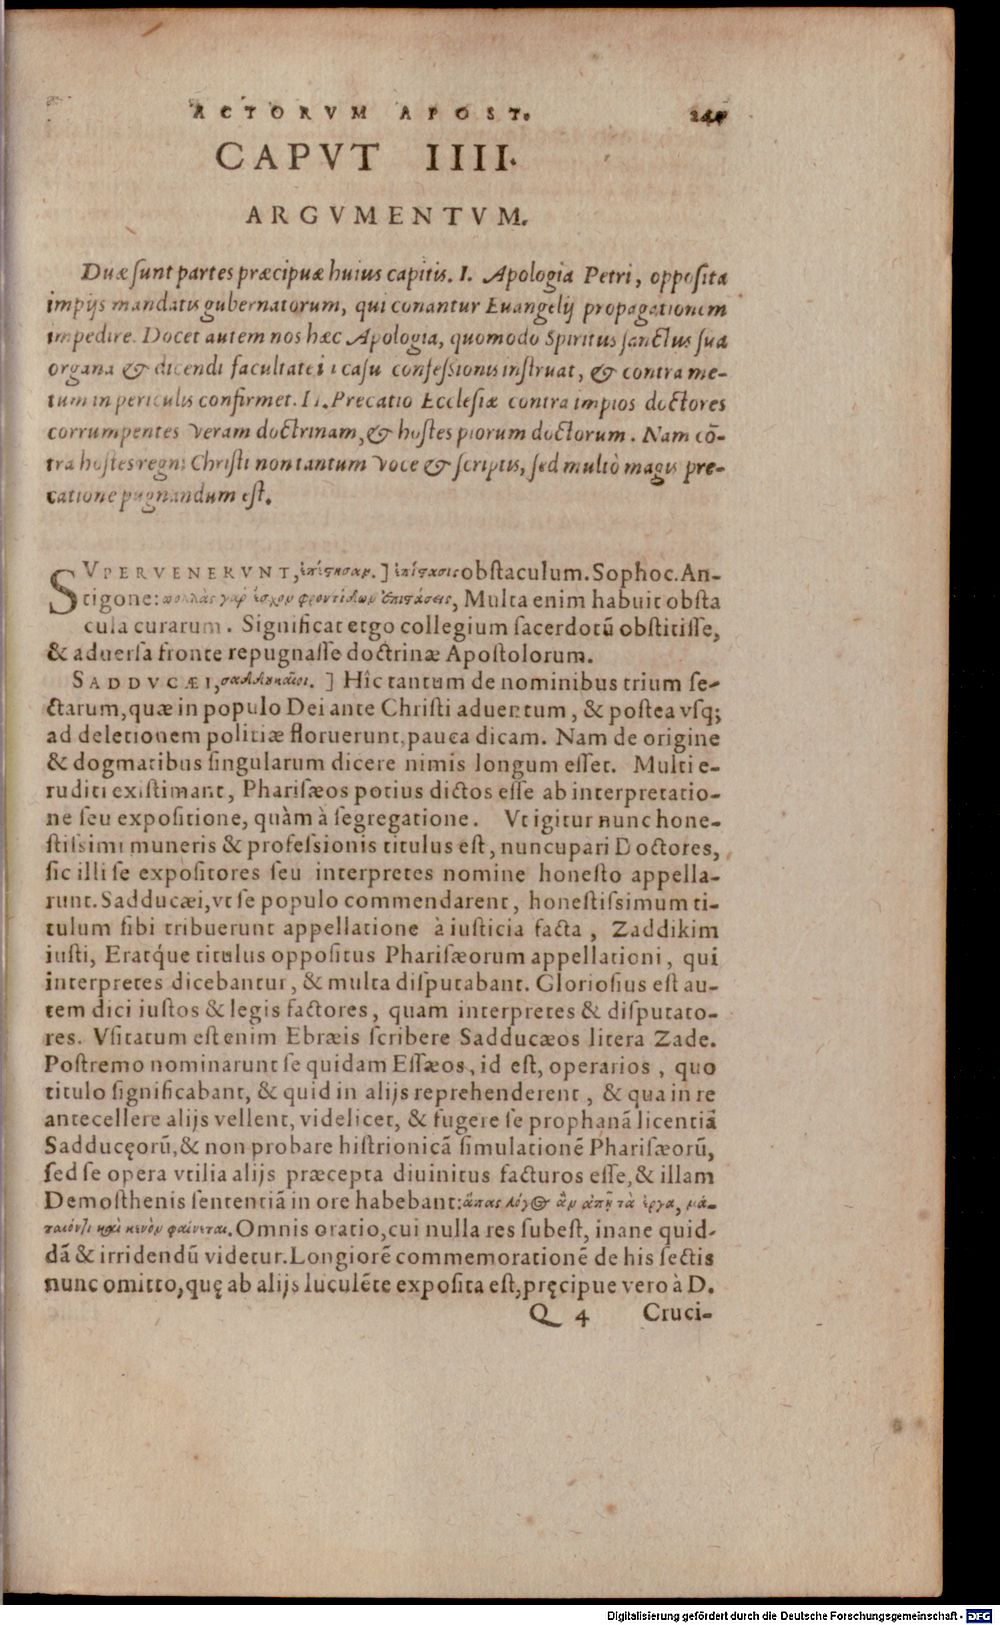 ACTORVM APOST.
CAPVT IIII.
ARGVMENTVM.
Duæ ſunt partes præcipuæ huius capitis. I. Apologia Petri, oppoſita
impijs mandatis gubernatorum, qui conantur Euangelij propagationem
impedire. Docet autem nos hæc Apologia, quomodo Spiritus ſanctus ſua
organa & dicendi facultate in caſu confeſsionis inſtruat, & contra me-
tum in periculis confirmet. II. Precatio Eccleſiæ contra impios doctores
corrumpentes veram doctrinam, & hoſtes piorum doctorum. Nam cõ-
tra hoſtes regni Chriſti non tantum voce & ſcriptis, ſed multò magis pre-
catione pugnandum eſt.
SVPERVENERVNT, ἐπέςησαν.] ἐπίςασις obſtaculum. Sophoc. An-
tigone: πολλὰς γὰρ ἔσχον φροντίδων ἐπιςάσεις, Multa enim habuit obſta
cula curarum. Significat ergo collegium ſacerdotũ obſtitiſſe,
& aduerſa fronte repugnaſſe doctrinæ Apoſtolorum.
SADDVCÆI, σαδδουκαῖοι.] Hîc tantum de nominibus trium ſe-
ctarum, quæ in populo Dei ante Chriſti aduentum, & poſtea vſq;
ad deletionem politiæ floruerunt, pauca dicam. Nam de origine
& dogmatibus ſingularum dicere nimis longum eſſet. Multi e-
ruditi exiſtimant, Phariſæos potius dictos eſſe ab interpretatio-
ne ſeu expoſitione, quàm à ſegregatione. Vt igitur nunc hone-
ſtiſsimi muneris & profeſsionis titulus eſt, nuncupari Doctores,
ſic illi ſe expoſitores ſeu interpretes nomine honeſto appella-
runt. Sadducæi, vt ſe populo commendarent, honeſtiſsimum ti-
tulum ſibi tribuerunt appellatione à iuſticia facta, Zaddikim
iuſti, Eratq́ue titulus oppoſitus Phariſæorum appellationi, qui
interpretes dicebantur, & multa diſputabant. Glorioſius eſt au-
tem dici iuſtos & legis factores, quam interpretes & diſputato-
res. Vſitatum eſt enim Ebræis ſcribere Sadducæos litera Zade.
Poſtremo nominarunt ſe quidam Eſſæos, id eſt, operarios, quo
titulo ſignificabant, & quid in alijs reprehenderent, & qua in re
antecellere alijs vellent, videlicet, & fugere ſe prophanã licentiã
Sadducęorũ, & non probare hiſtrionicã ſimulationẽ Phariſæorũ,
ſed ſe opera vtilia alijs præcepta diuinitus facturos eſſe, & illam
Demoſthenis ſententiã in ore habebant: ἅπας λόγος ἂν ἀπῇ τὰ ἔργα, μά-
ταιόν τι καὶ κενὸν φαίνεται. Omnis oratio, cui nulla res ſubeſt, inane quid-
dã & irridendũ videtur. Longiorẽ commemorationẽ de his ſectis
nunc omitto, quę ab alijs luculẽte expoſita eſt, pręcipue vero à D.
Q 4 Cruci-
Digitalisierung gefördert durch die Deutsche Forschungsgemeinschaft - DFG